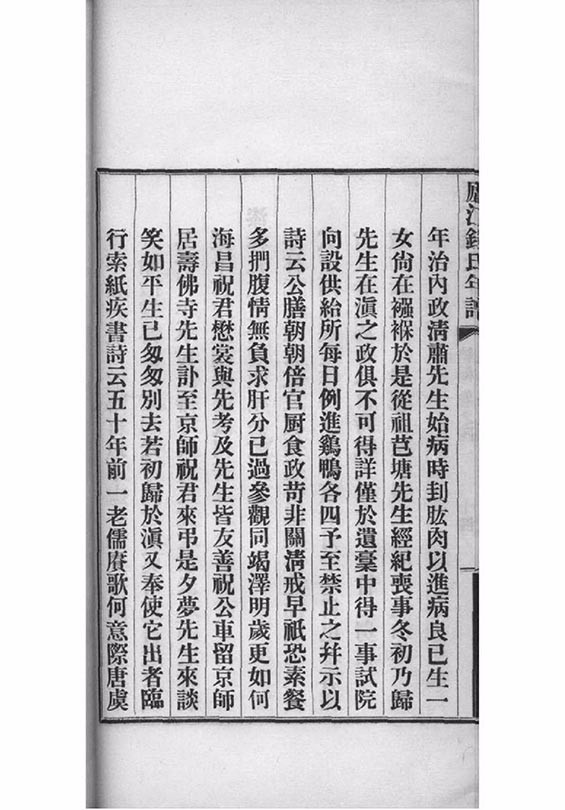 廬江錢氏年譜
年治內政淸肅先生始病時刲肱肉以進病良已生一
女尙在襁褓於是從祖芭塘先生經紀喪事冬初乃歸
先生在滇之政俱不可得詳僅於遺稾中得一事試院
向設供給所每日例進鷄鴨各四予至禁止之幷示以
詩云公膳朝朝倍官厨食政苛非關淸戒早祇恐素餐
多捫腹情無負求肝分已過參觀同竭澤明歲更如何
海昌祝君懋裳與先考及先生皆友善祝公車留京師
居壽佛寺先生訃至京師祝君來弔是夕夢先生來談
笑如平生已匆匆別去若初歸於滇又奉使它出者臨
行索紙疾書詩云五十年前一老儒賡歌何意際唐虞